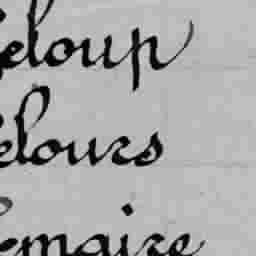 eloup
elours
emaire